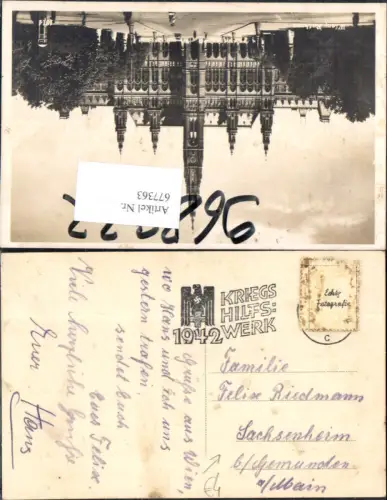 Artikel Nr.
677363
KRIEGS
HILFS:
WERK
1942
Echte
Fotografie
C
Grüße aus Wien,
wo Hans und ich uns
gestern trafen
sendet Euch
Euer Felix.
Viele herzliche Grüße
Euer Hans
Familie
Felix Riedmann
Sachsenheim
b/Gemünden
a/Main